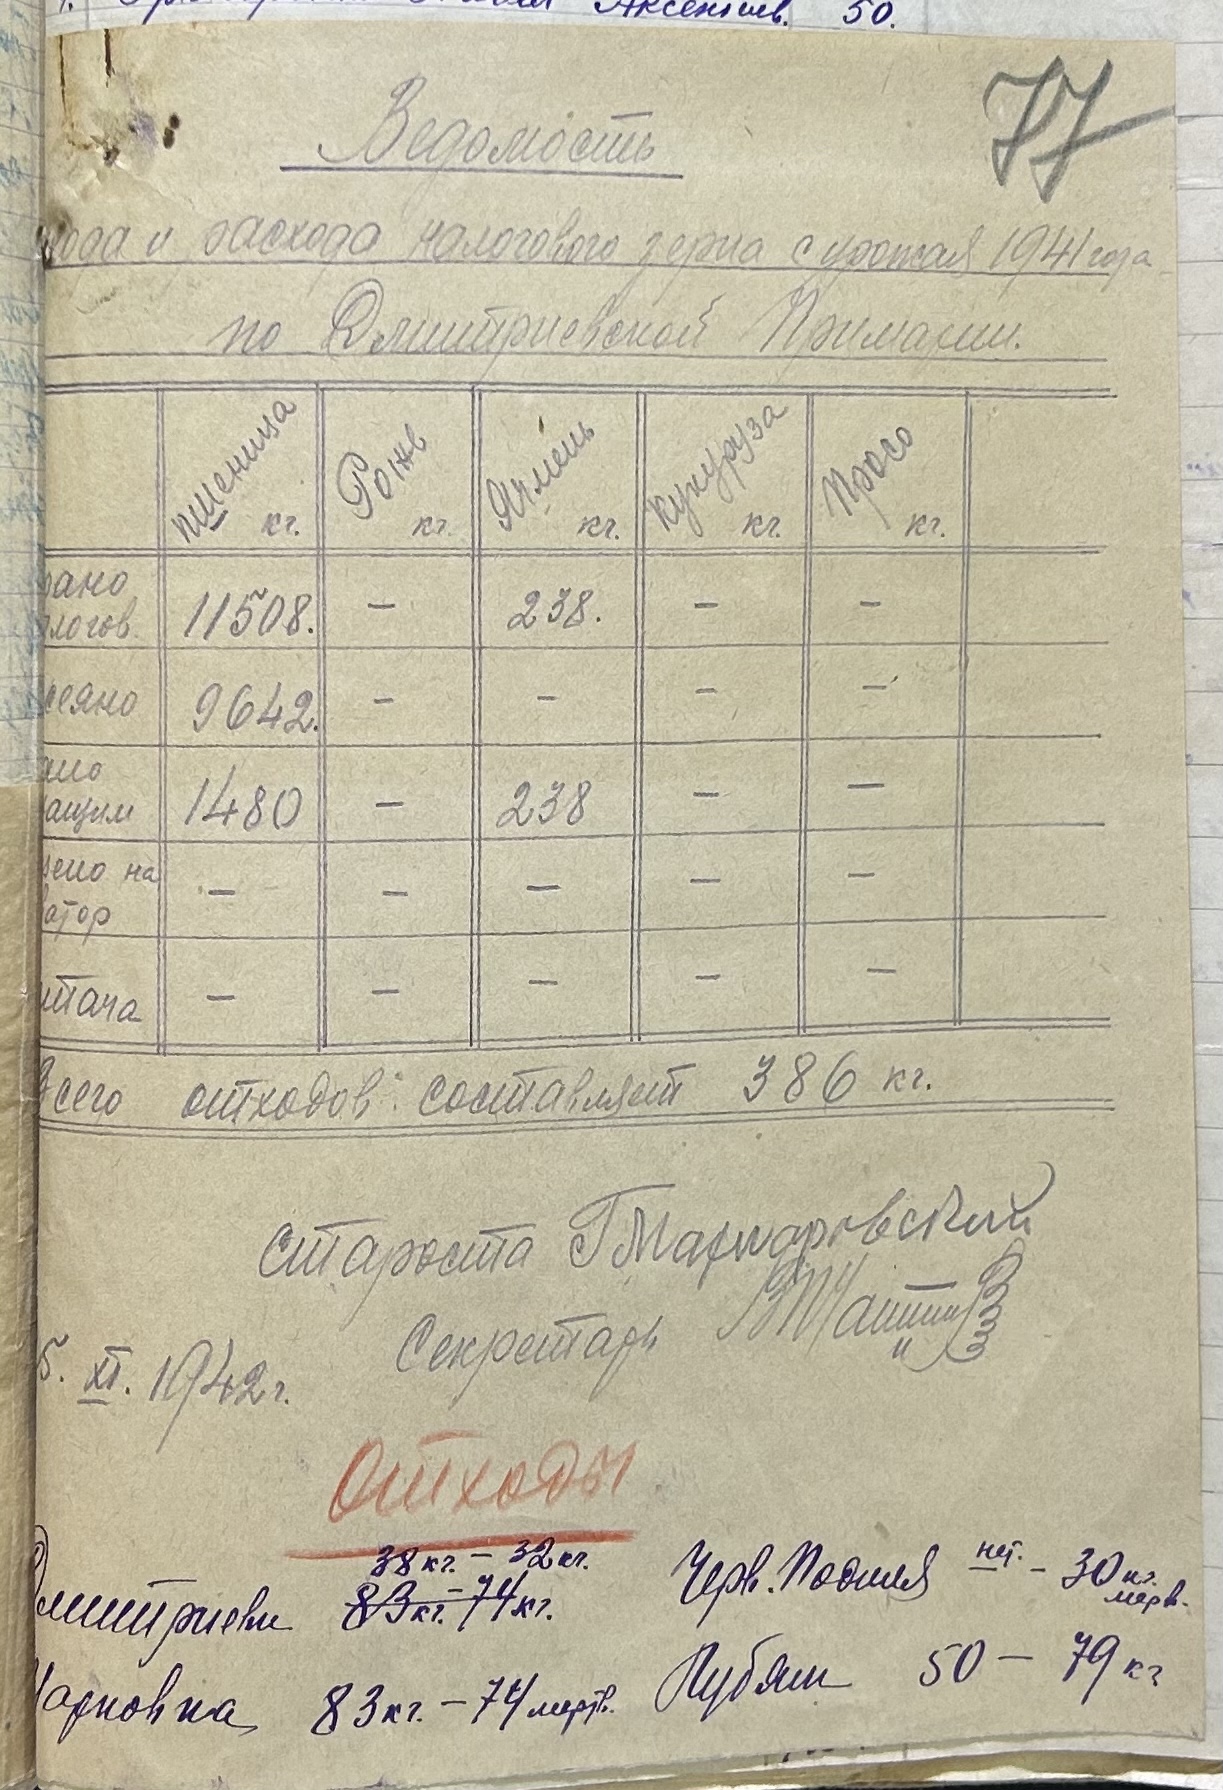 Аксентиев. 50.
77
Ведомость
хода и расхода налогового зерна с урожая 1941 года
по Дмитриевской Примарии.
пшеница кг. Рожь кг. Ячмень кг. кукуруза кг. Просо кг.
рано
логов. 11508. – 238. – –
сеяно 9642. – – – –
ано
ащим 1480 – 238 – –
зено на
ватор – – – – –
тача – – – – –
Всего отходов составляет 386 кг.
Староста
Секретарь
5. XI. 1942 г.
Отходы
38 кг. – 32 кг.
Дмитриевк 83 кг. – 74 кг.
Черв. Подиля нет. – 30 кг. мертв.
Марковка 83 кг. – 74 мертв.
50 – 79 кг